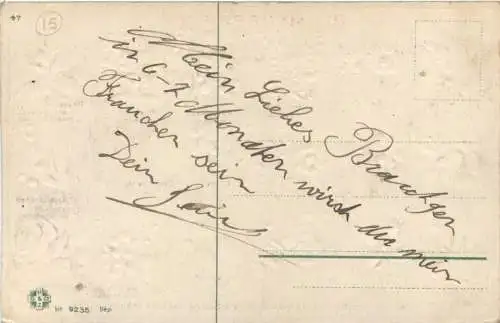 47
15
Mein Liebes Brautchen
in 6-7 Monaten wirst du mein
Frauchen sein
Dein
9235